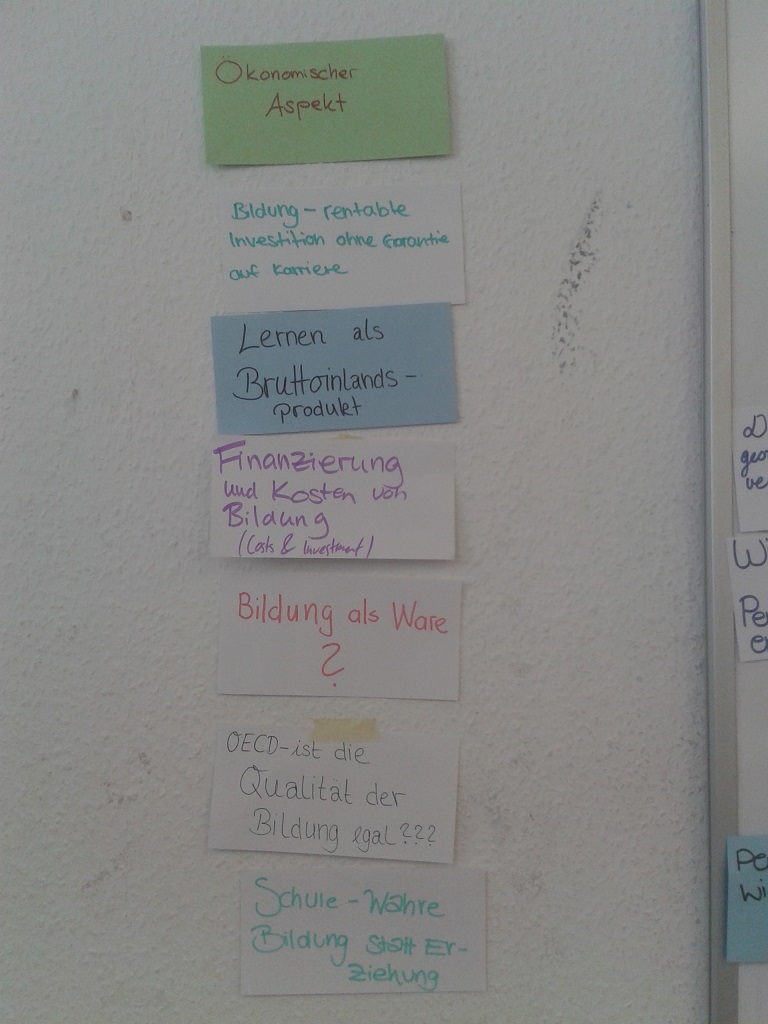 Ökonomischer
Aspekt
Bildung - rentable
Investition ohne Garantie
auf Karriere
Lernen als
Bruttoinlands-
produkt
Finanzierung
und Kosten von
Bildung
(Costs & Investment)
Bildung als Ware
?
OECD-ist die
Qualität der
Bildung egal???
Schule - Wahre
Bildung statt Er-
ziehung
D
geo
ve
Wi
Pe
e
Pe
Wi